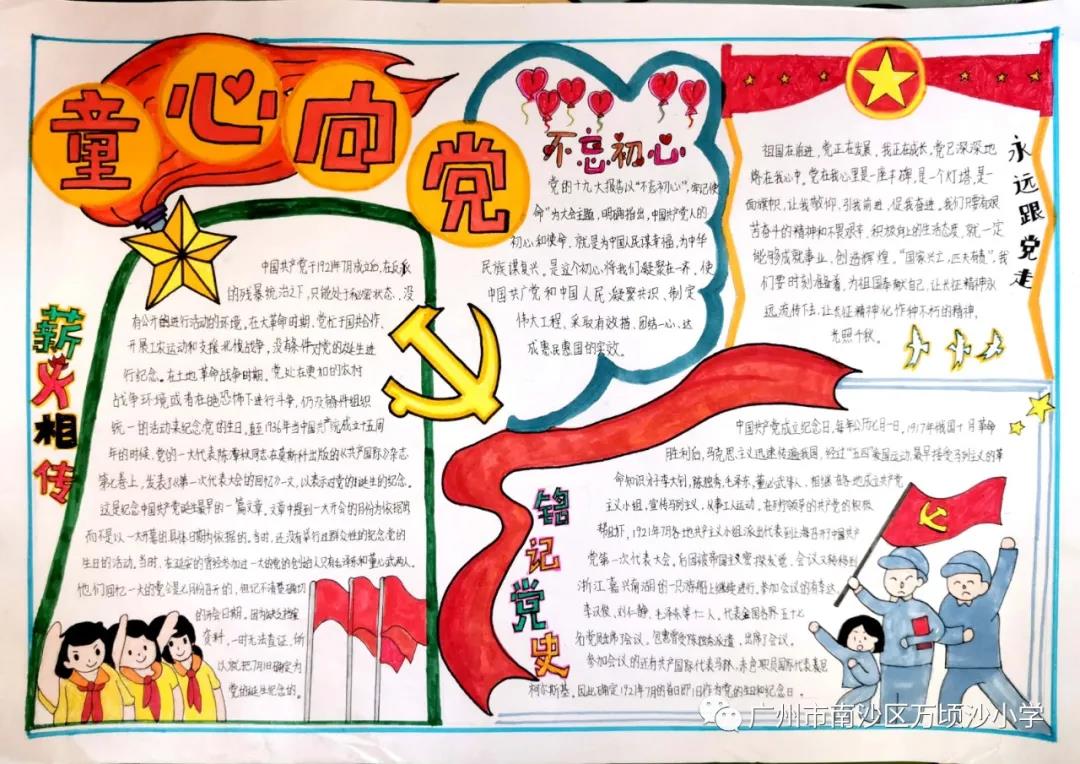 童心向党
薪火相传
中国共产党于1921年7月成立后,在反
的残暴统治之下,只能处于秘密状态,没
有公开的进行活动的环境。在大革命时期,党忙于国共合作、
开展工农运动和支援北伐战争,没有条件对党的诞生进
行纪念。在土地革命战争时期,党处在更加的农村
战争环境或者在恐怖下进行斗争,仍没条件组织
统一的活动来纪念党的生日,直至1936年当中国共产党成立十五周
年的时候,党的一大代表陈潭秋同志在莫斯科出版的《共产国际》杂志
第七卷上,发表了《第一次代表大会的回忆》一文,以表示对党的诞生的纪念。
这是纪念中国共产党诞生最早的一篇文章,文章中提到一大开会的日份为依据的
而不是以一大开幕的具体日期为依据的。当时,还没有举行过群众性的纪念党的
生日的活动。当时,在延安的曾经参加过一大的党的创始人只有毛泽东和董必武两人。
他们回忆一大的党会是七月份召开的,但记不清楚确切
的开会日期。因为缺乏档案
资料,一时无法查证,所
以就把7月1日确定为
党的诞生纪念的。
不忘初心
党的十九大报告以“不忘初心”,牢记使
命”为大会主题,明确指出,中国共产党人的
初心和使命,就是为中国人民谋幸福,为中华
民族谋复兴。是这个初心,将我们凝聚在一齐,使
中国共产党和中国人民凝聚共识、制定
伟大工程,采取有效措,团结一心、达
成惠民惠国的实效。
永远跟党走
祖国在前进,党正在发展,我正在成长,党已深深地
烙在我心中。党在我心里是一座丰碑,是一个灯塔,是一
面旗帜,让我敬仰,引我前进,促我奋进,我们只要有艰
苦奋斗的精神和不畏艰辛,积极向上的生活态度,就一定
能够成就事业,创造辉煌。“国家兴亡,匹夫有责”,我
们要时刻准备着,为祖国奉献自己,让长征精神永
远流传下去,让长征精神化作种不朽的精神,
光照千秋。
铭记党史
中国共产党成立纪念日,每年公历七月一日。1917年俄国十月革命
胜利后,马克思主义迅速传遍我国,经过“五四”爱国运动,最早接受马列主义的革
命知识分子李大钊,陈独秀、毛泽东,董必武等人,相继在各地成立共产党
主义小组,宣传马列主义,从事工人运动,在列宁领导的共产党的积极
帮助下,1921年7月各地共产主义小组派出代表到上海召开了中国共产
党第一次代表大会,后因被帝国主义密探发觉,会议又转移到
浙江嘉兴南湖的一只游船上继续进行。参加会议的有李达、
李汉俊、刘仁静、毛泽东等十二人,代表全国各界五十七
名党员出席了会议。包惠僧受陈独秀派遣,出席了会议。
参加会议的还有共产国际代表马林、赤色职员国际代表表尼
柯尔斯基。因此确定1921年7月的首日即1日作为党的生日和纪念日。
广州市南沙区万顷沙小学